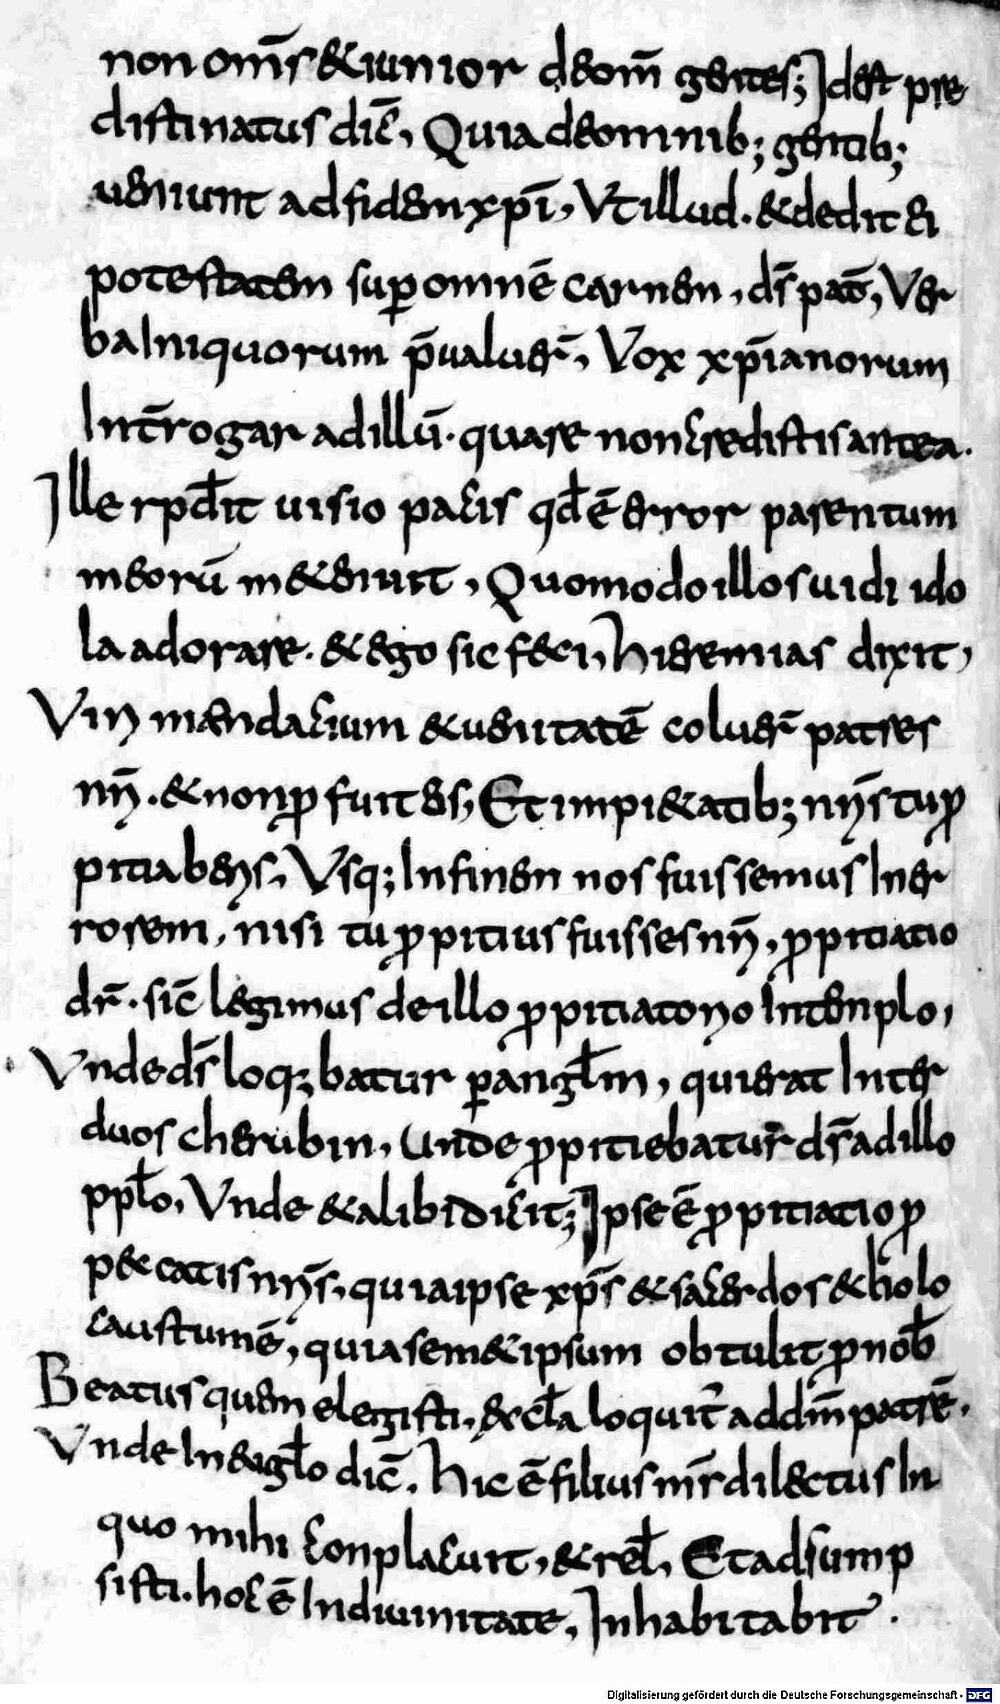 non om̄s & iunior de om̄ gentes; Idest pre
distinatus dic̄, Quia de omnib; gentib;
ueniunt ad fidem xp̄i, Ut illud. & dedit ei
potestatem sup̱ omnē carnen, d̄s pat̄, Uer
ba Iniquorum p̄ualuer̄, Vox xp̄ianorum
Int̄rogar ad illū. quare non credistis antea.
Ille rpd̄it uisio pacis qd̄ ē error parentum
meorū me & iuit, Quomodo illos uidi ido
la adorare. & ego sic feci, hieremias dixit,
Vin mendacium & ueritatē coluer̄ patres
nr̄i. & non ꝓfuit eis, Et impi&atib; nr̄is tu ꝓ
pitiaberis, Vsq; In finen nos fuissemus In er
rorem, nisi tu ꝓpitius fuisses nr̄i, ꝓpitiatio
dr̄. sic̄ legimus de illo ꝓpitiatorio In templo,
Vnde d̄s loq;batur p̱ angl̄m, qui erat Inter
duos cherubin, unde ꝓpitiebatur d̄s ad illo
ppl̄o, Vnde & alibi dicit; Ipse ē ꝓpitiatio ꝓ
peccatis nr̄is, quia ipse xp̄s & sacerdos & holo
caustum ē, quia sem&ipsum obtulit ꝓ nob̄
Beatus quem elegisti, ecl̄a loquit̄ ad dm̄ patrē.
Vnde In eugl̄o dic̄. hic ē filius m̄s dilectus In
quo mihi conplacuit, & rel̄, Et adsump
sisti. hoc ē In diuinitate, Inhabitabit.
Digitalisierung gefördert durch die Deutsche Forschungsgemeinschaft - DFG